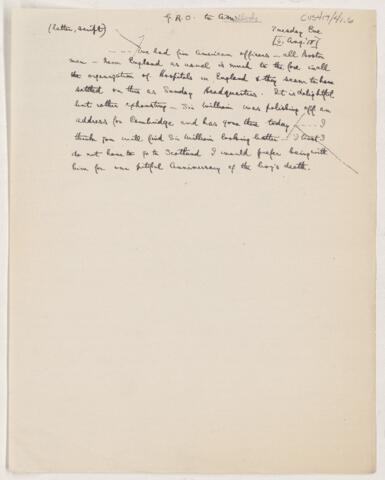 G.R.O. to Am
CUS417/4/1.6
(Letter, script)
Tuesday Eve
[6. Aug. 18]
---- I've had five American officers - all Boston
men - New England as usual is much to the fore in all
the organization of Hospitals in England & they seem to have
settled on this as Sunday Headquarters. It is delightful
but rather exhausting - Sir William was polishing off an
address for Cambridge and has gone there today ---- I
think you will find Sir William looking better - I trust I
do not have to go to Scotland I would prefer being with
him for our pitiful Anniversary of the boy's death.